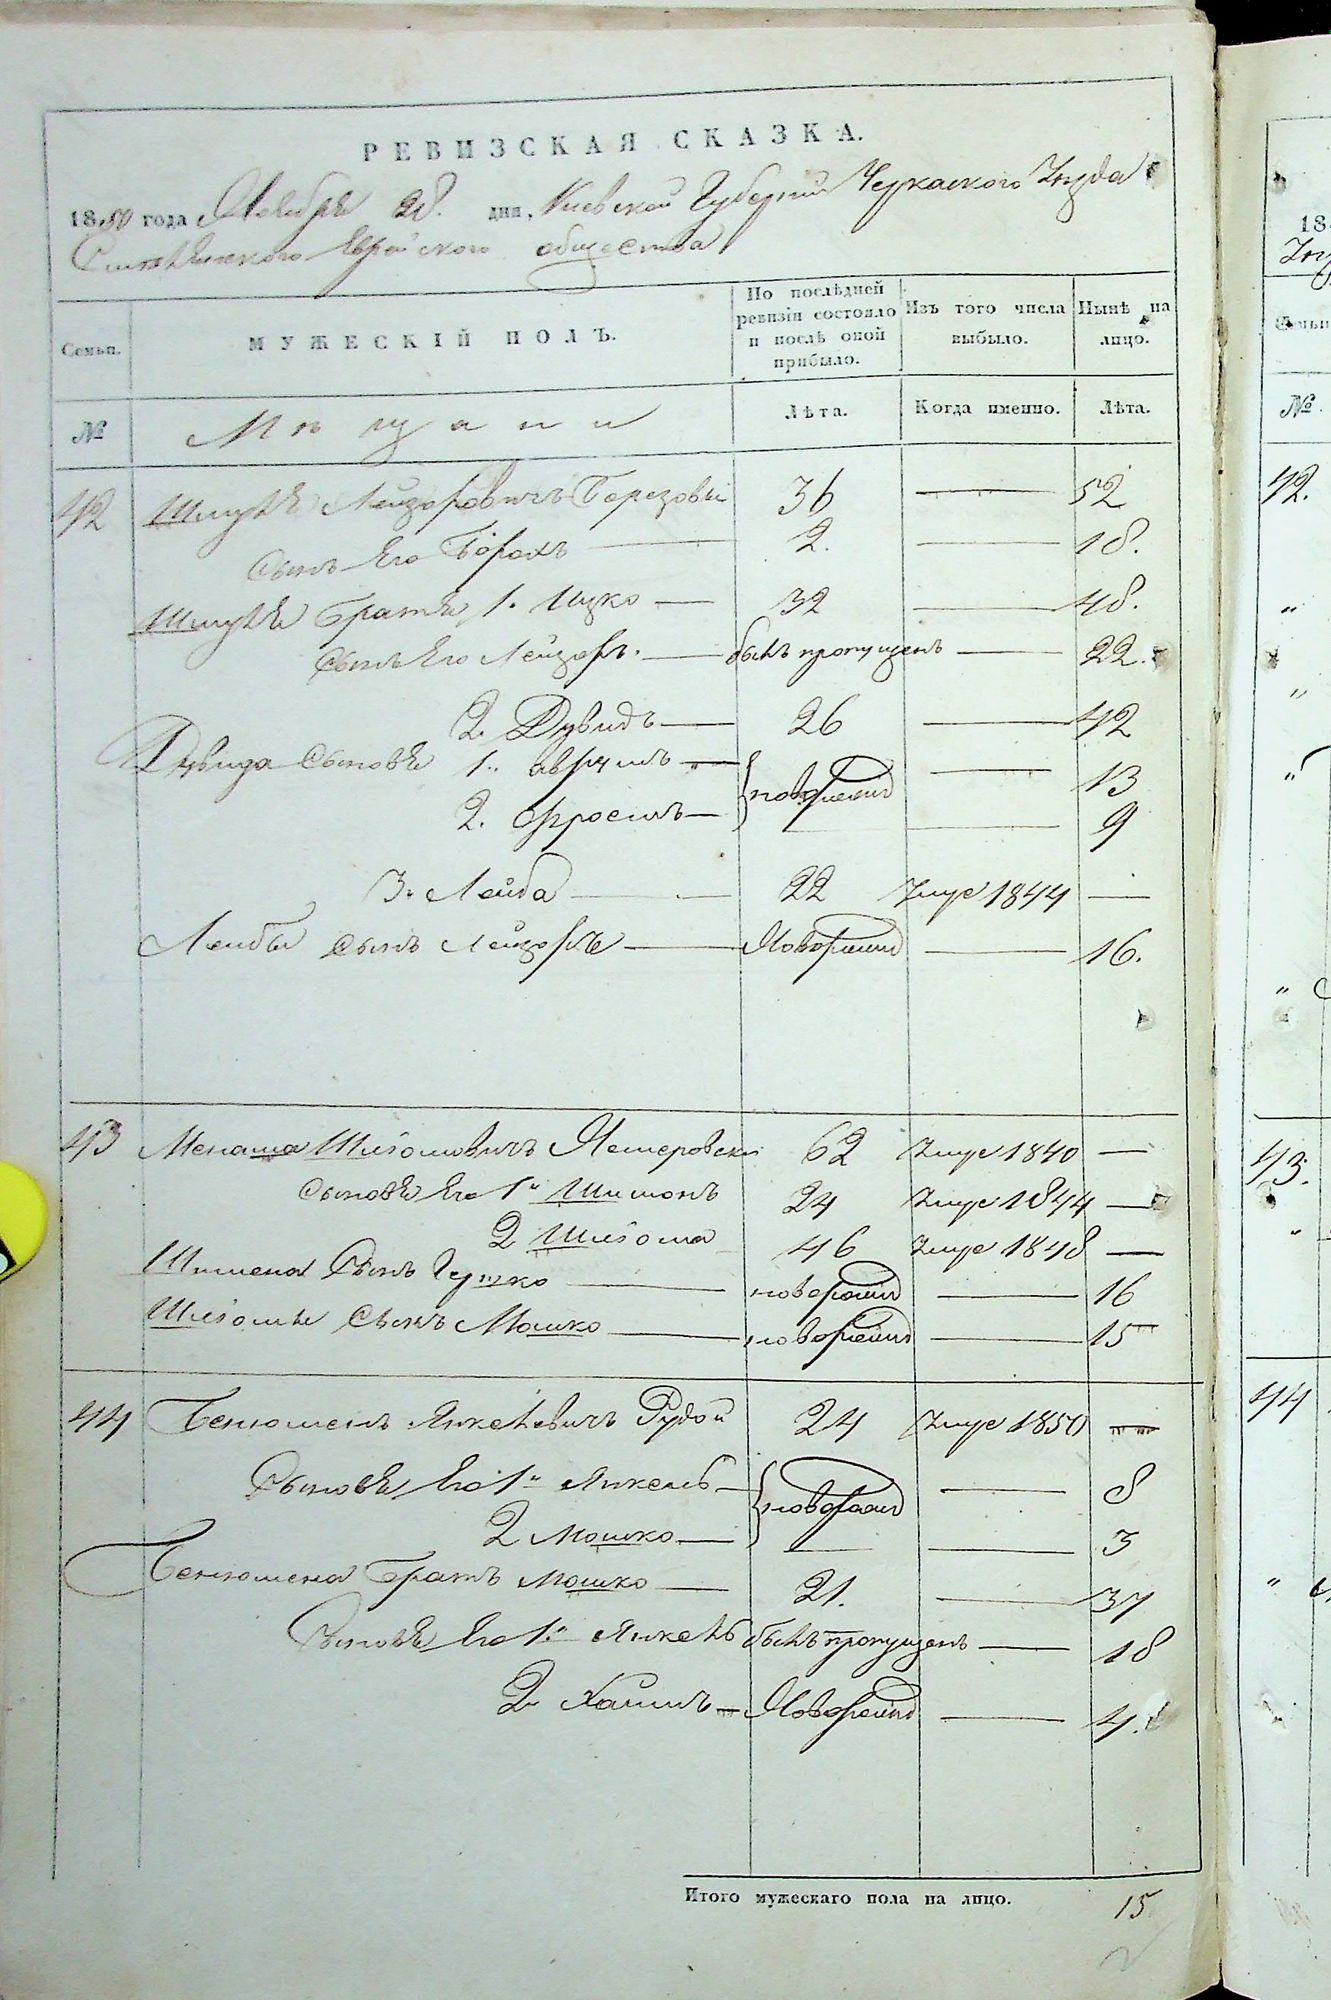 РЕВИЗСКАЯ СКАЗКА.
1850 года Ноября 28. дня, Киевской Губернии Черкаского Уезда
Еврейского общества
Семьи.
МУЖЕСКІЙ ПОЛЪ.
По послѣдней ревизіи состояло и послѣ оной прибыло.
Изъ того числа выбыло.
Нынѣ на лицо.
№
Мѣщани
Лѣта.
Когда именно.
Лѣта.
42 Шмуль Лейзоровичъ Березовый 36 — 52
Сынъ Его Борохъ — 2. — 18.
Шмуля Братья 1. Ицко — 32 — 48.
Сынъ Его Лейзоръ. — былъ пропущенъ — 22.
2. Дувидъ — 26 — 42
Дувида Сыновья 1. Аврумъ — новорожд — 13
2. Фроимъ — — 9
3. Лейба — 22 Умре 1844 —
Лейбы Сынъ Лейзоръ — Новорожд — 16.
43 Менаша Шлёомовичъ 62 Умре 1840 —
Сыновья Его 1й Шимонъ 24 Умре 1844 —
2 Шлёома 46 Умре 1848 —
Шимона Сынъ Гершко — новорожд — 16
Шлёомы Сынъ Мошко — новорожд — 15
44 Бенюменъ Янкелевичъ Рудой 24 Умре 1850 —
Сыновья Его 1й Янкель — новорожд — 8
2 Мошко — — 3
Бенюмена Братъ Мошко — 21. — 37
Сыновья Его 1й Янкель былъ пропущенъ — 18
2й Хаимъ — Новорожд — 4.
Итого мужескаго пола на лицо. 15
18
№
42.
43.
44